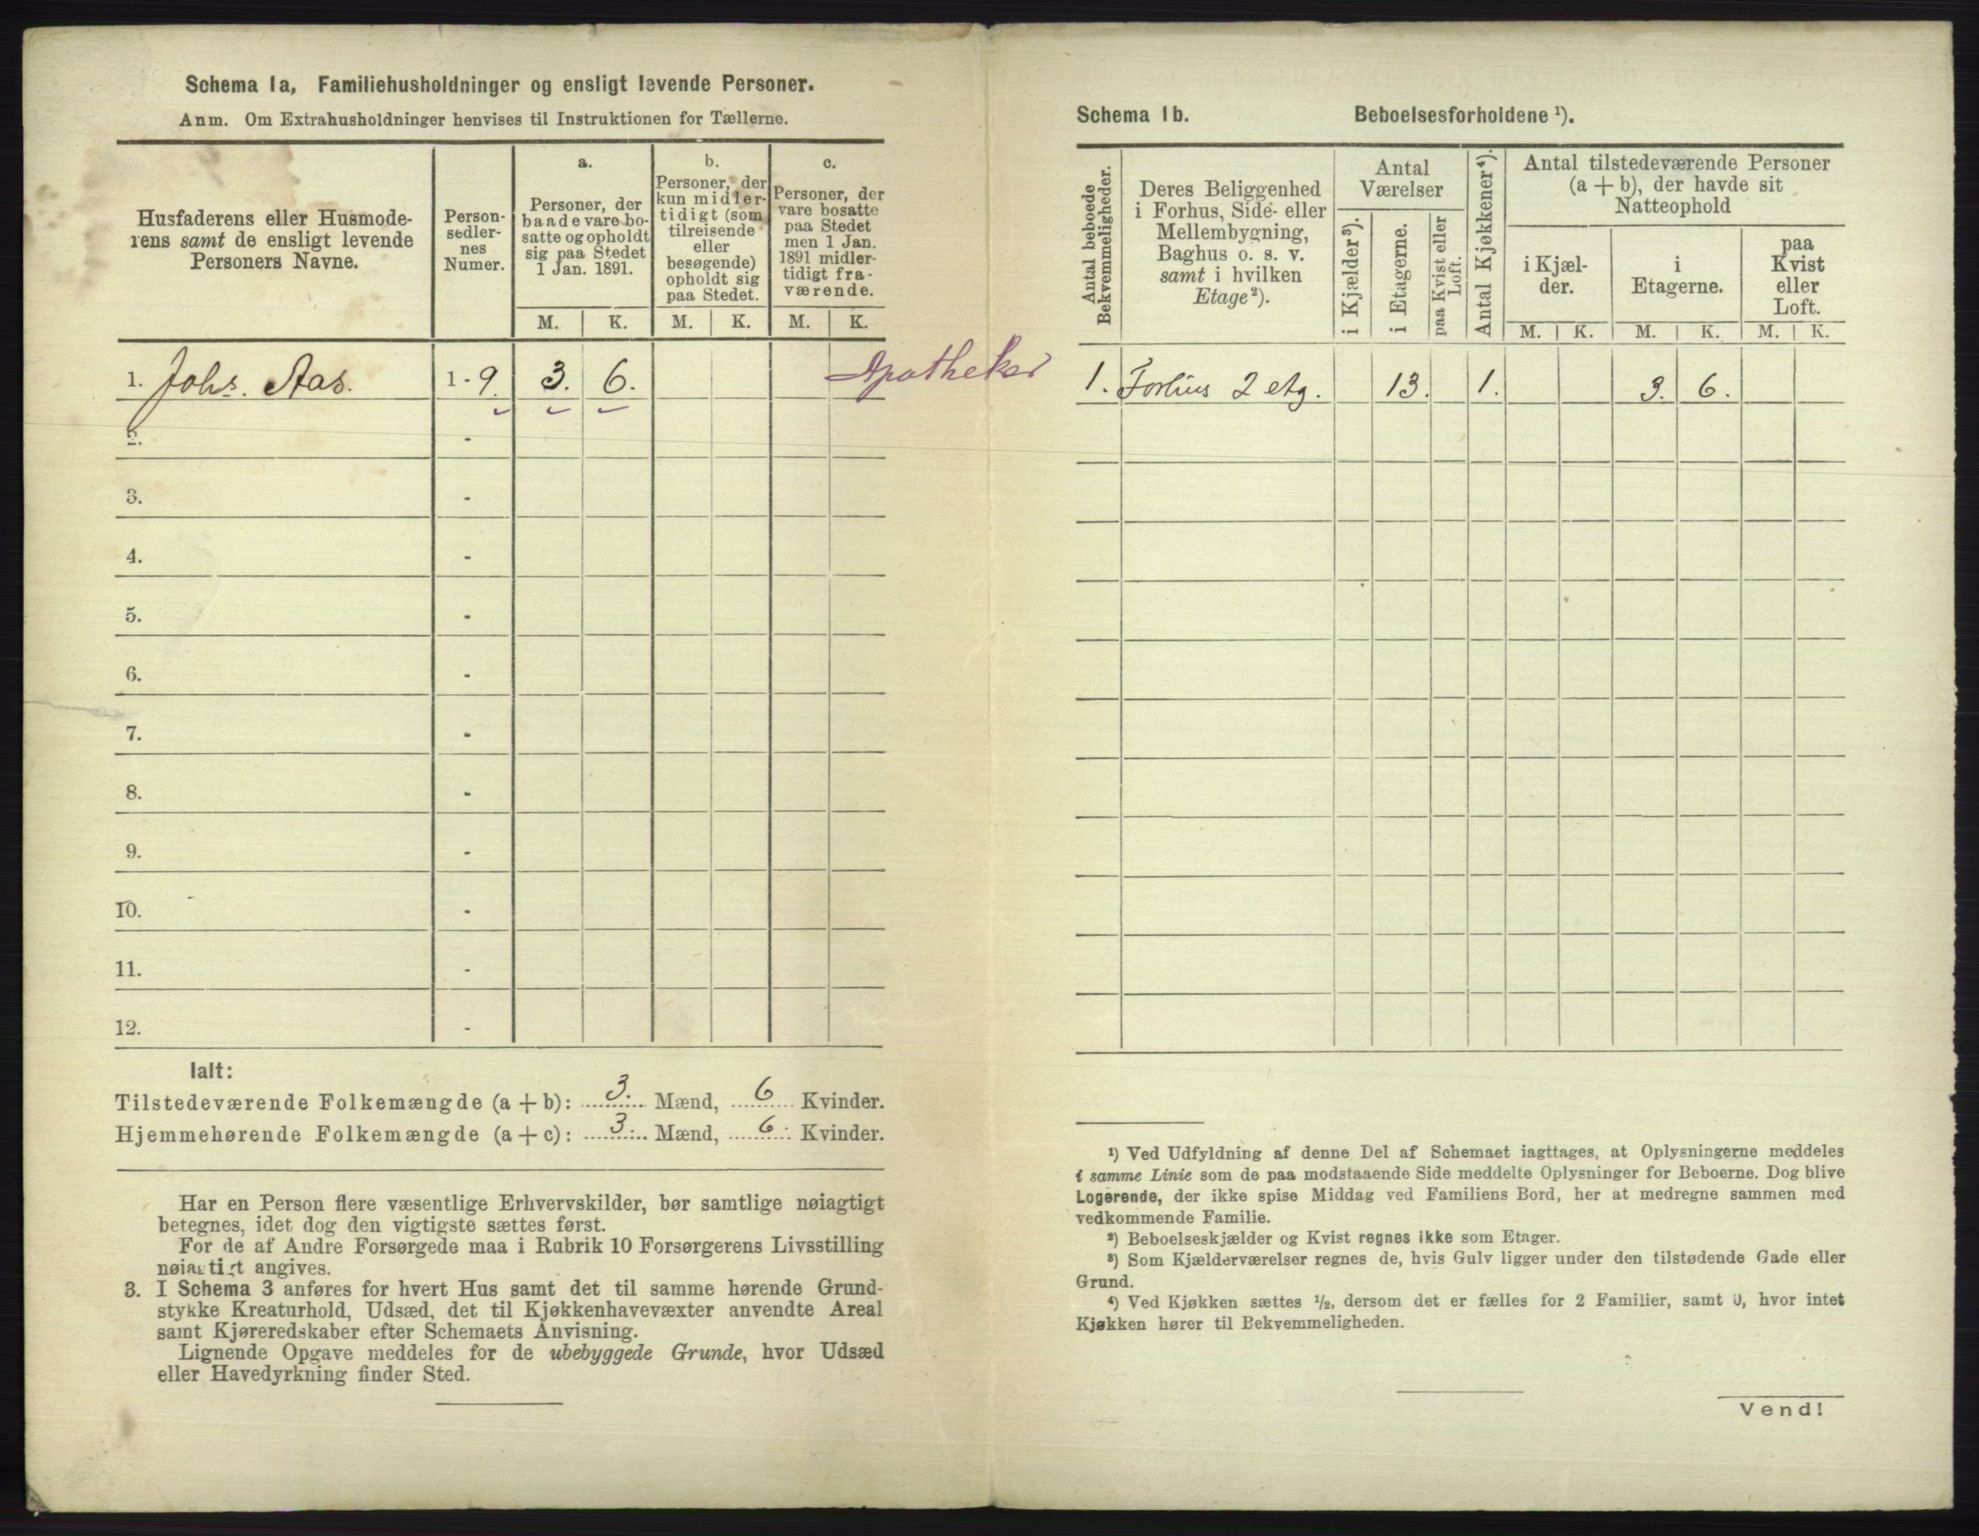 Schema 1a, Familiehusholdninger og ensligt levende Personer.
Anm. Om Extrahusholdninger henvises til Instruktionen for Tællerne.
Husfaderens eller Husmode-
rens samt de ensligt levende
Personers Navne.
Person-
sedler-
nes
Numer.
a.
Personer, der
baade vare bo-
satte og opholdt
sig paa Stedet
1 Jan. 1891.
b.
Personer, der
kun midler-
tidigt (som
tilreisende
eller
besøgende)
opholdt sig
paa Stedet.
c.
Personer, der
vare bosatte
paa Stedet
men 1 Jan.
1891 midler-
tidigt fra-
værende.
M. K. M. K. M. K.
1. Johs. Aas. 1-9. 3. 6. Apotheker
2. -
3. -
4. -
5. -
6. -
7. -
8. -
9. -
10. -
11. -
12. -
Ialt:
Tilstedeværende Folkemængde (a + b): 3. Mænd, 6 Kvinder.
Hjemmehørende Folkemængde (a + c): 3. Mænd, 6. Kvinder.
Har en Person flere væsentlige Erhvervskilder, bør samtlige nøiagtigt
betegnes, idet dog den vigtigste sættes først.
For de af Andre Forsørgede maa i Rubrik 10 Forsørgerens Livsstilling
nøiagtigt angives.
3. I Schema 3 anføres for hvert Hus samt det til samme hørende Grund-
stykke Kreaturhold, Udsæd, det til Kjøkkenhavevæxter anvendte Areal
samt Kjøreredskaber efter Schemaets Anvisning.
Lignende Opgave meddeles for de ubebyggede Grunde, hvor Udsæd
eller Havedyrkning finder Sted.
Schema 1b. Beboelsesforholdene ¹).
Antal beboede
Bekvemmeligheder.
Deres Beliggenhed
i Forhus, Side- eller
Mellembygning,
Baghus o. s. v.
samt i hvilken
Etage²).
Antal
Værelser
i Kjælder³).
i Etagerne.
paa Kvist eller
Loft.
Antal Kjøkkener⁴).
Antal tilstedeværende Personer
(a + b), der havde sit
Natteophold
i Kjæl-
der.
i
Etagerne.
paa
Kvist
eller
Loft.
M. K. M. K. M. K.
1. Forhus 2 etg. 13. 1. 3. 6.
¹) Ved Udfyldning af denne Del af Schemaet iagttages, at Oplysningerne meddeles
i samme Linie som de paa modstaaende Side meddelte Oplysninger for Beboerne. Dog blive
Logerende, der ikke spise Middag ved Familiens Bord, her at medregne sammen med
vedkommende Familie.
²) Beboelseskjælder og Kvist regnes ikke som Etager.
³) Som Kjælderværelser regnes de, hvis Gulv ligger under den tilstødende Gade eller
Grund.
⁴) Ved Kjøkken sættes ½, dersom det er fælles for 2 Familier, samt 0, hvor intet
Kjøkken hører til Bekvemmeligheden.
Vend!